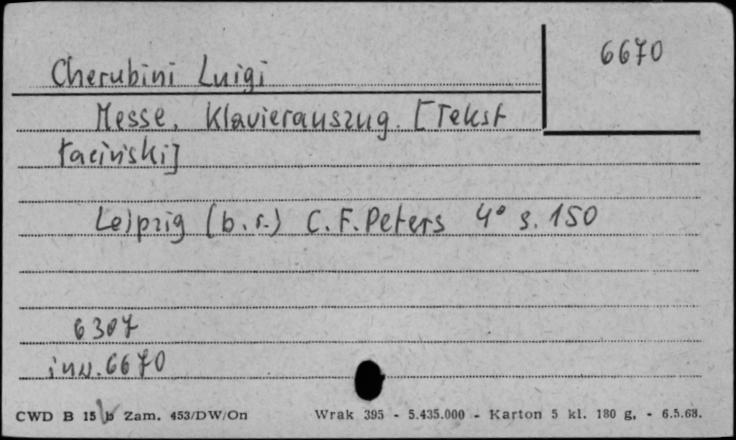 6670
Cherubini Luigi
Messe, Klavierauszug. [Tekst
łaciński]
Leipzig (b.r.) C.F. Peters 4° s. 150
6307
inw. 6670
CWD B 15 b Zam. 453/DW/On Wrak 395 - 5.435.000 - Karton 5 kl. 180 g. - 6.5.68.